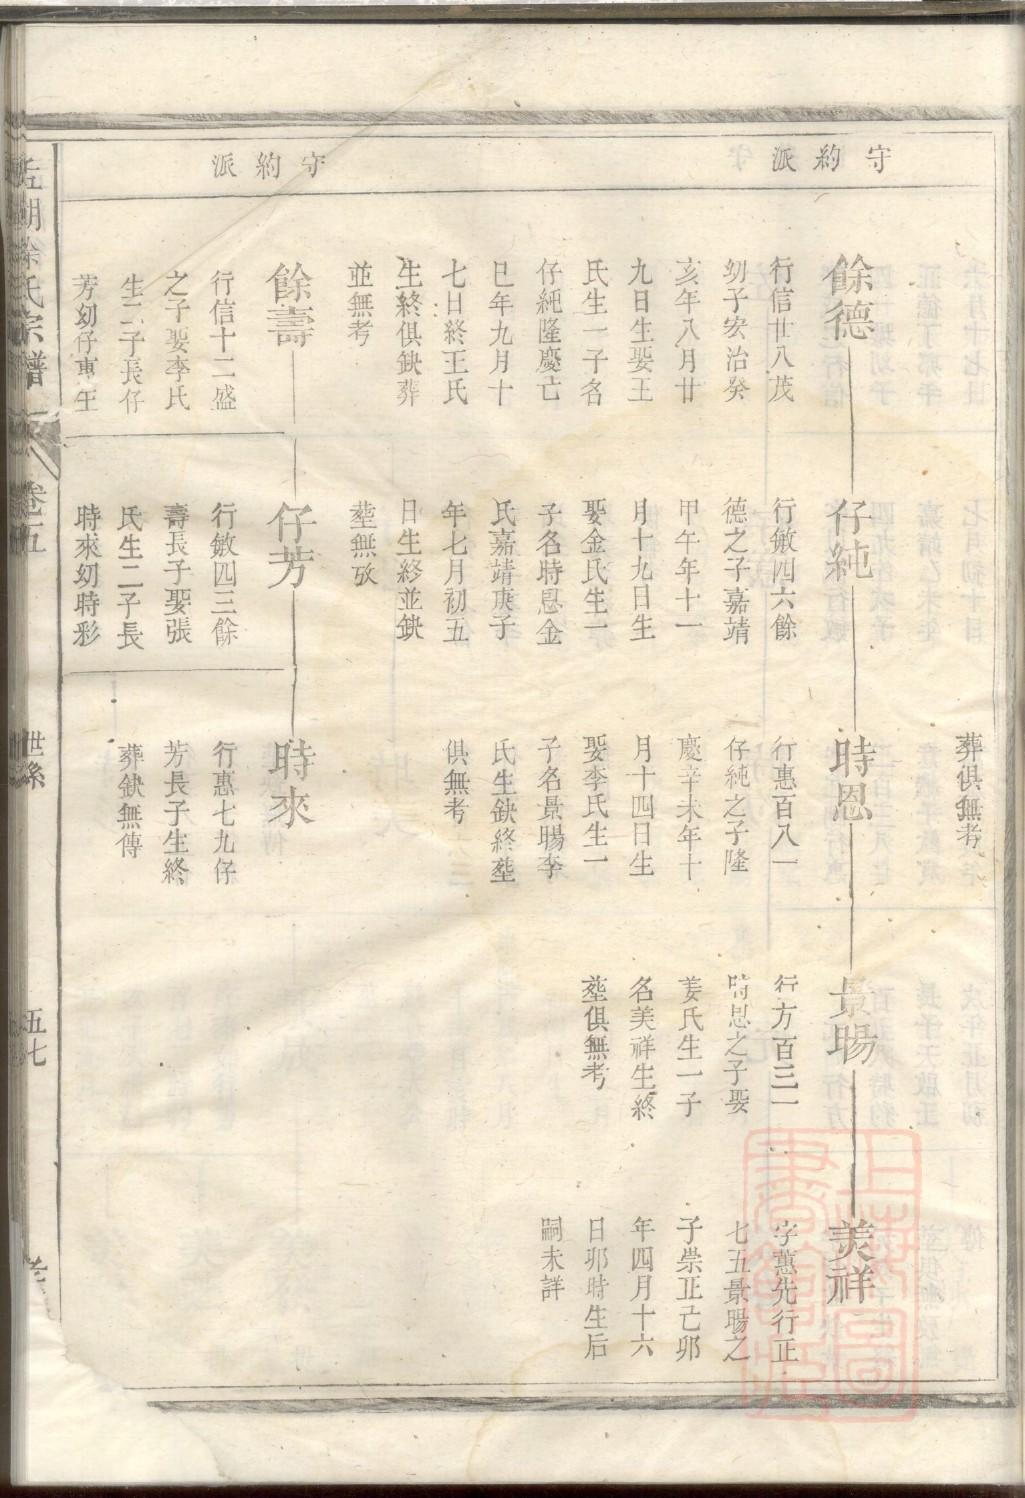 守約派
守約派
葬俱無考
餘德
行信廿八茂
幼子宏治癸
亥年八月廿
九日生娶王
氏生一子名
仔純隆慶已
巳年九月十
七日終王氏
生終俱缺葬
並無考
仔純
行敏四六餘
德之子嘉靖
甲午年十一
月十九日生
娶金氏生一
子名時恩金
氏嘉靖庚子
年七月初五
日生終並缺
塟無攷
時恩
行惠百八一
仔純之子隆
慶辛未年十
月十四日生
娶李氏生一
子名景暘李
氏生缺終塟
俱無考
景暘
行方百三一
時恩之子娶
姜氏生一子
名美祥生終
塟俱無考
美祥
字蕙先行正
七五景暘之
子崇正己卯
年四月十六
日卯時生后
嗣未詳
餘壽
行信十二盛
之子娶李氏
生二子長仔
芳幼仔
仔芳
行敏四三餘
壽長子娶張
氏生二子長
時來幼時彩
時來
行惠七九仔
芳長子生終
葬缺無傳
湖徐氏宗譜
卷五
世系
五七
上海圖書館藏